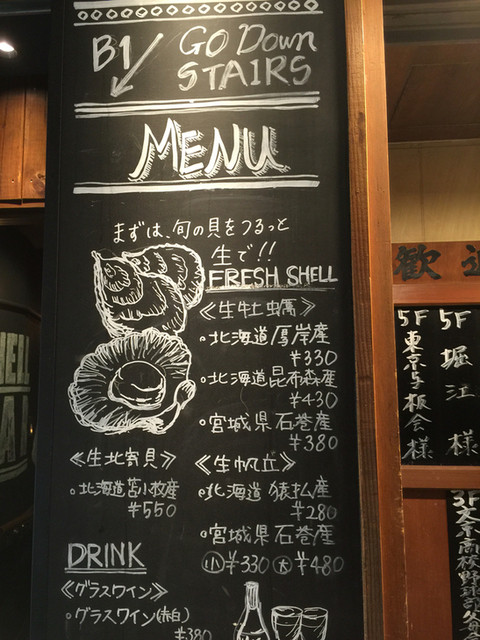 B1 GO DOWN
STAIRS
MENU
まずは、旬の貝をつるっと
生で!!
FRESH SHELL
≪生牡蠣≫
•北海道厚岸産
¥330
•北海道昆布森産
¥430
•宮城県石巻産
¥380
≪生北寄貝≫
•北海道苫小牧産
¥550
≪生帆立≫
•北海道猿払産
¥280
•宮城県石巻産
小¥330 大¥480
DRINK
≪グラスワイン≫
•グラスワイン(赤白)
¥380
歓迎
5F 堀江様
5F 東京与板会様
3F